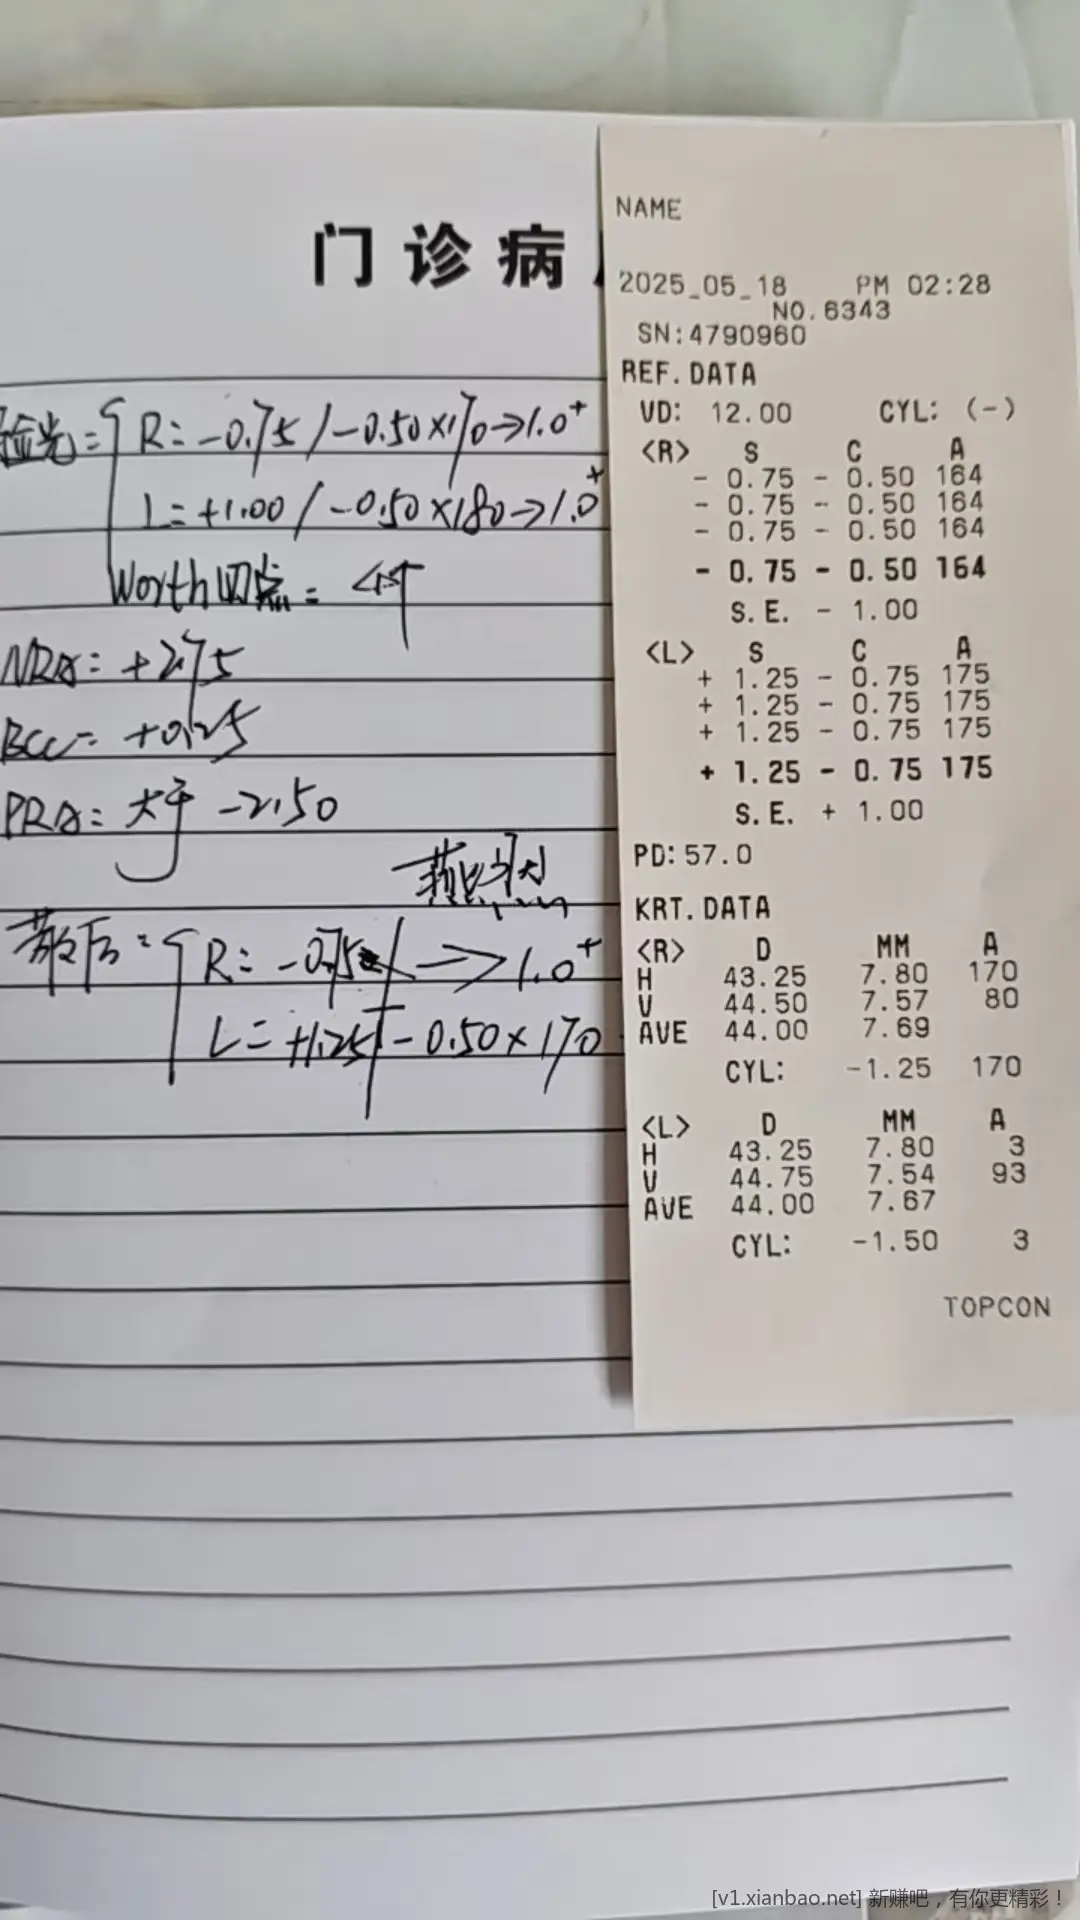 门诊病
验光: R: -0.75 / -0.50×170→1.0⁺
L: +1.00 / -0.50×180→1.0⁺
Worth四点: 4个
NRA: +2.75
BCC: +0.25
PRA: 大于 -2.50
散后: R: -0.75 → 1.0⁺
L: +1.25 / -0.50×170
NAME
2025_05_18 PM 02:28
NO.6343
SN:4790960
REF.DATA
VD: 12.00 CYL: (-)
<R> S C A
- 0.75 - 0.50 164
- 0.75 - 0.50 164
- 0.75 - 0.50 164
- 0.75 - 0.50 164
S.E. - 1.00
<L> S C A
+ 1.25 - 0.75 175
+ 1.25 - 0.75 175
+ 1.25 - 0.75 175
+ 1.25 - 0.75 175
S.E. + 1.00
PD:57.0
KRT.DATA
<R> D MM A
H 43.25 7.80 170
V 44.50 7.57 80
AVE 44.00 7.69
CYL: -1.25 170
<L> D MM A
H 43.25 7.80 3
V 44.75 7.54 93
AVE 44.00 7.67
CYL: -1.50 3
TOPCON
[v1.xianbao.net] 新赚吧，有你更精彩！